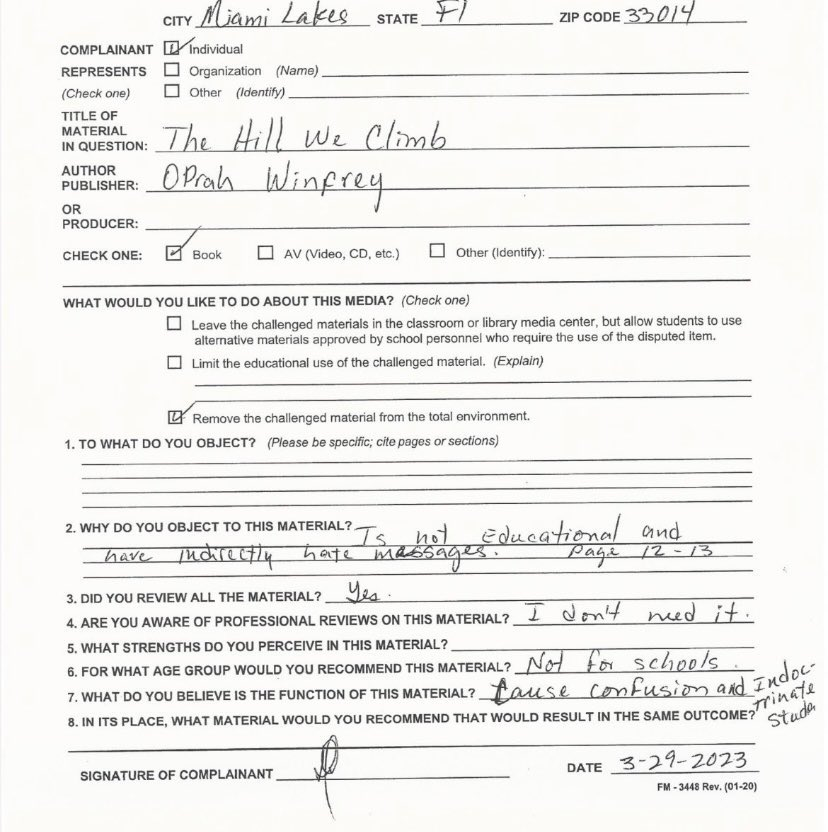 CITY Miami Lakes STATE Fl ZIP CODE 33014
COMPLAINANT Individual
REPRESENTS Organization (Name)
(Check one) Other (Identify)
TITLE OF
MATERIAL
IN QUESTION: The Hill We Climb
AUTHOR
PUBLISHER: Oprah Winfrey
OR
PRODUCER:
CHECK ONE: Book AV (Video, CD, etc.) Other (Identify):
WHAT WOULD YOU LIKE TO DO ABOUT THIS MEDIA? (Check one)
Leave the challenged materials in the classroom or library media center, but allow students to use
alternative materials approved by school personnel who require the use of the disputed item.
Limit the educational use of the challenged material. (Explain)
Remove the challenged material from the total environment.
1. TO WHAT DO YOU OBJECT? (Please be specific; cite pages or sections)
2. WHY DO YOU OBJECT TO THIS MATERIAL? Is not Educational and
have indirectly hate massages. Page 12-13
3. DID YOU REVIEW ALL THE MATERIAL? Yes.
4. ARE YOU AWARE OF PROFESSIONAL REVIEWS ON THIS MATERIAL? I don't need it.
5. WHAT STRENGTHS DO YOU PERCEIVE IN THIS MATERIAL?
6. FOR WHAT AGE GROUP WOULD YOU RECOMMEND THIS MATERIAL? Not for schools.
7. WHAT DO YOU BELIEVE IS THE FUNCTION OF THIS MATERIAL? Cause confusion and Indoc-
trinate
Stude
8. IN ITS PLACE, WHAT MATERIAL WOULD YOU RECOMMEND THAT WOULD RESULT IN THE SAME OUTCOME?
SIGNATURE OF COMPLAINANT DATE 3-29-2023
FM - 3448 Rev. (01-20)